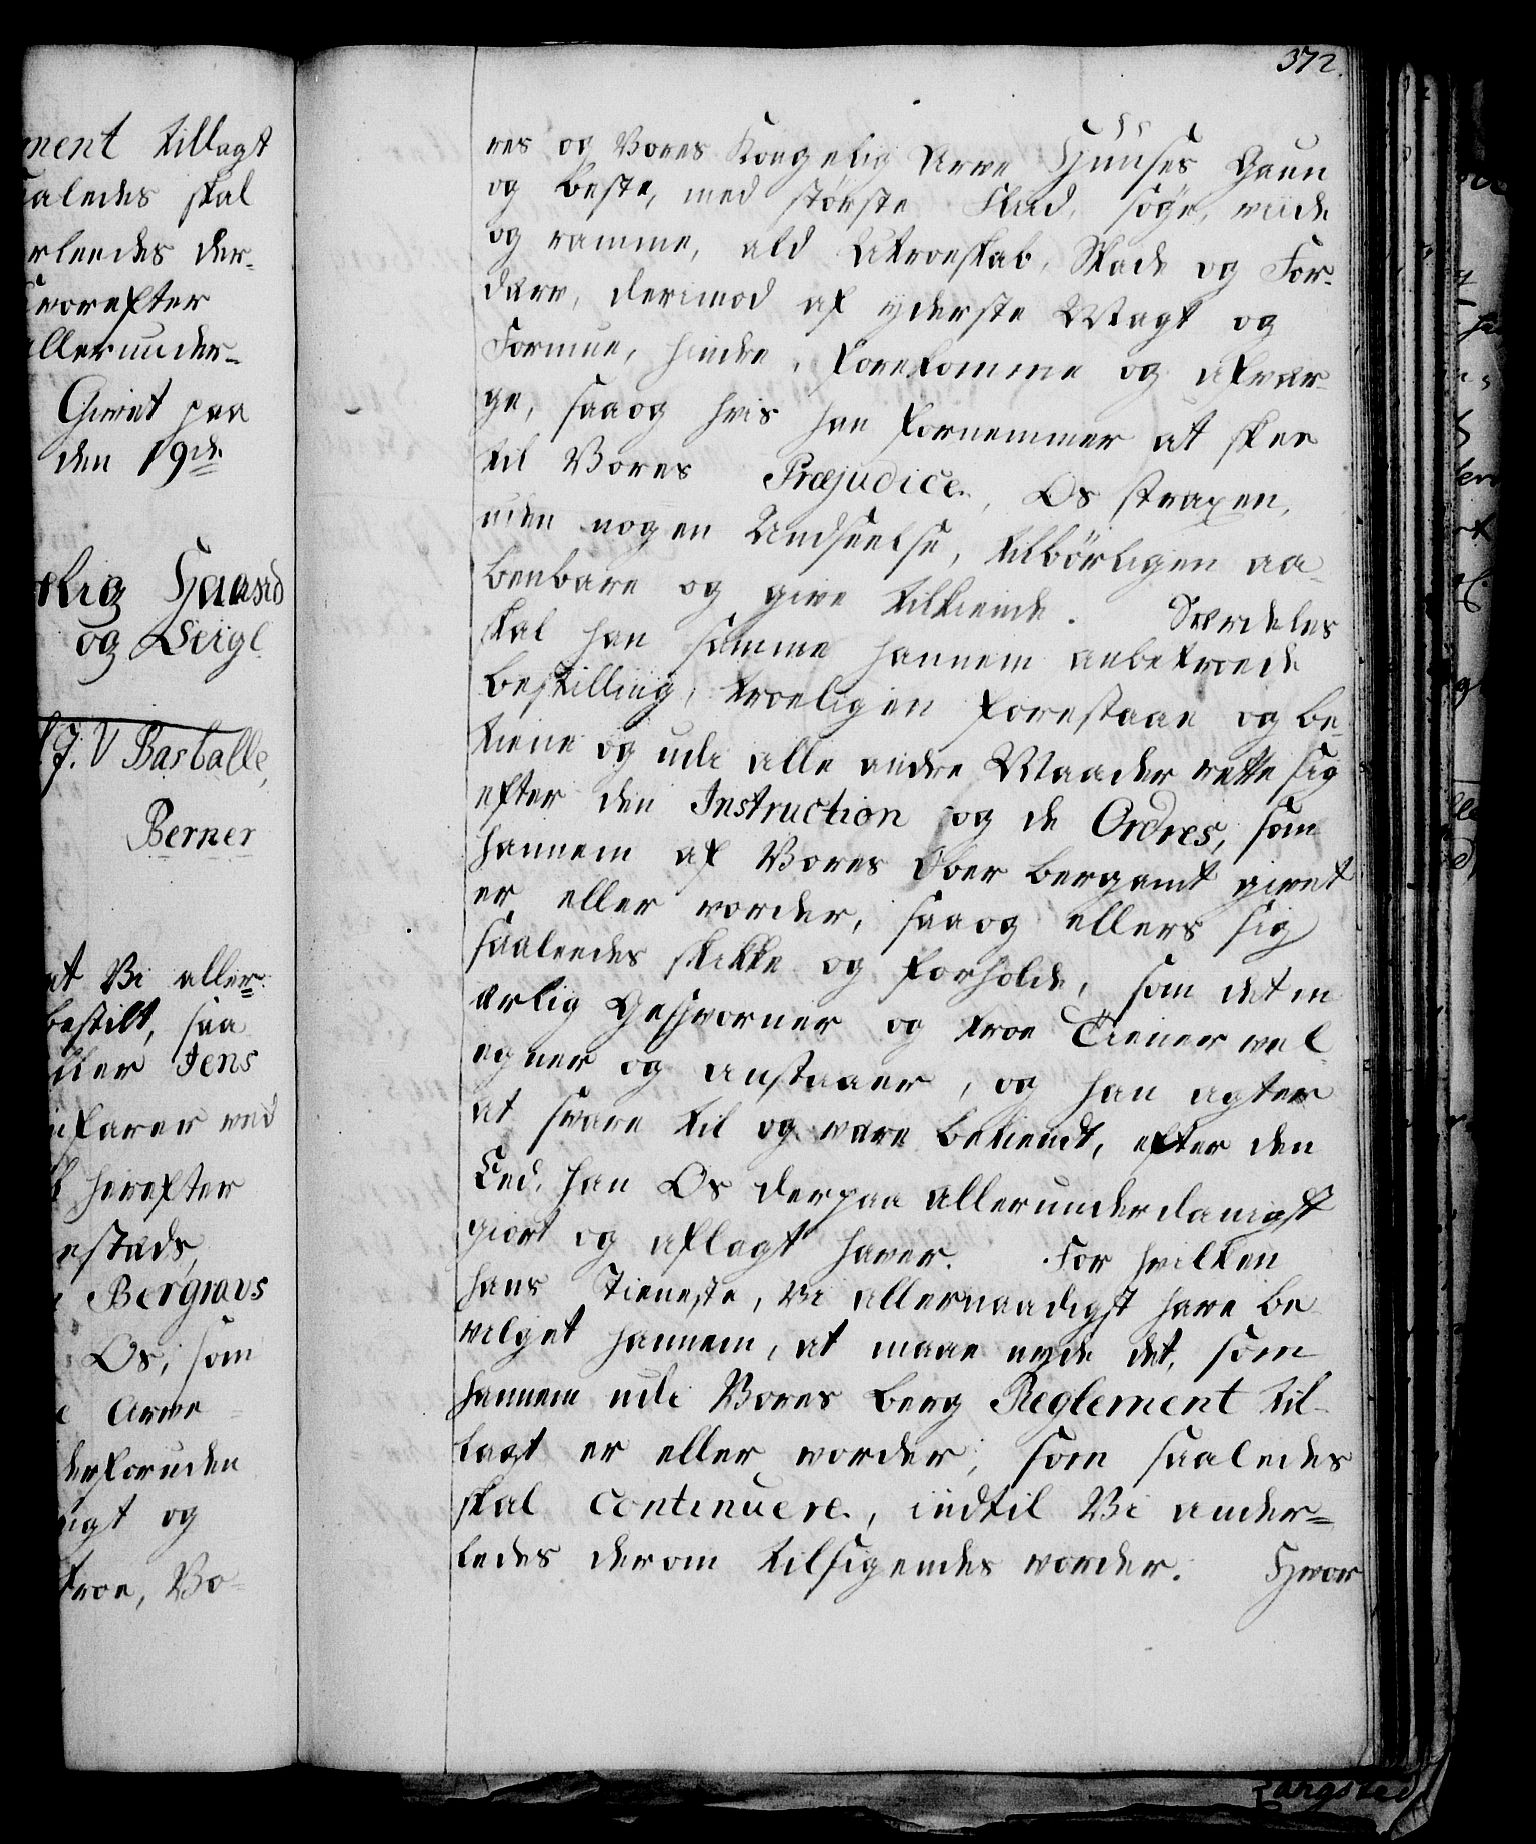 ment tillagt
saaledes skal
rleedes der-
Hvorefter
allerunder-
Givet paa
den 19de
elig Haand
og Seigl
J. V Bastalle,
Berner
at Vi aller-
bestilt, saa
ller Jens
farer ved
herefter
estæds,
Bergravs
Os, som
Arve
derforuden
agt og
troe, Vo-
372.
res og Vores Kongelig Arve Huuses Gaun
og beste, med störste Flid, söge, viide
og ramme, ald Utroeskab, Skade og For-
derv, derimod af yderste Magt og
Formue, hindre, forekomme og afvær-
ge, saa og hvis han fornemmer at skee
til Vores Præjudice, Os straxen,
uden nogen Undseelse, tilbörligen aa-
benbare og give tilkiende. Særdeles
skal han samme hannem anbetroede
bestilling, troeligen forestaae og be-
tiene og udi alle andre Maader rette sig
efter den Instruction og de Ordres, som
hannem af Vores Ober bergamt givet
er eller vorder, saa og ellers sig
saaleedes skikke og forholde, som det en
ærlig Geschworner og troe Tiener vel
egner og anstaaer, og han agter
at svare til og være bekiendt, efter den
Eed, han Os derpaa allerunderdanigst
giort og aflagt haver. For hvilken
hans Tieneste, Vi allernaadigst have be-
vilget hannem, at maae nyde det, som
hannem udi Vores berg Reglement til-
lagt er eller vorder, som saaledes
skal continuere, indtil Vi ander-
ledes derom tilsigendes vorder. Hvor
Langsted